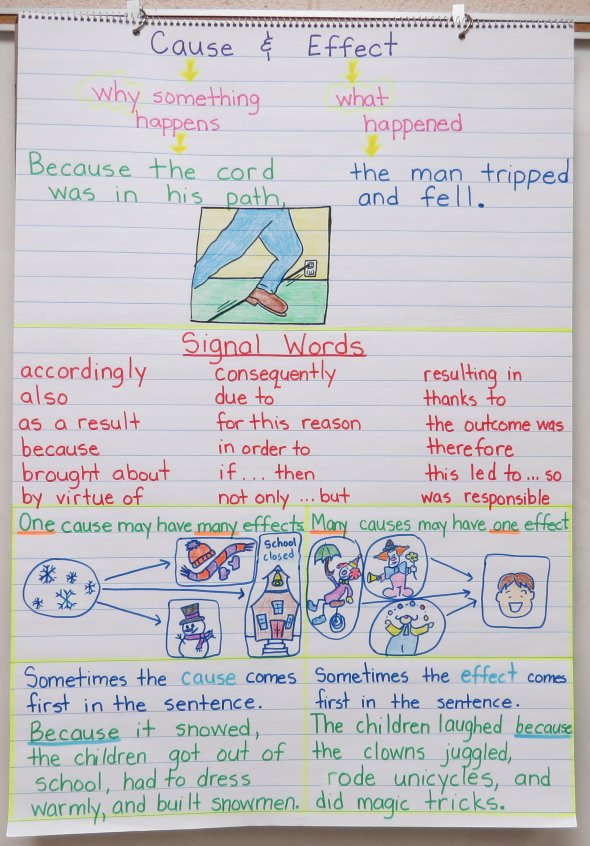 Cause & Effect
why something happens
what happened
Because the cord was in his path,
the man tripped and fell.
Signal Words
accordingly
also
as a result
because
brought about
by virtue of
consequently
due to
for this reason
in order to
if... then
not only ...but
resulting in
thanks to
the outcome was
therefore
this led to... so
was responsible
One cause may have many effects
School
closed
Many causes may have one effect
Sometimes the cause comes
first in the sentence.
Because it snowed,
the children got out of
school, had to dress
warmly, and built snowmen.
Sometimes the effect comes
first in the sentence.
The children laughed because
the clowns juggled,
rode unicycles, and
did magic tricks.